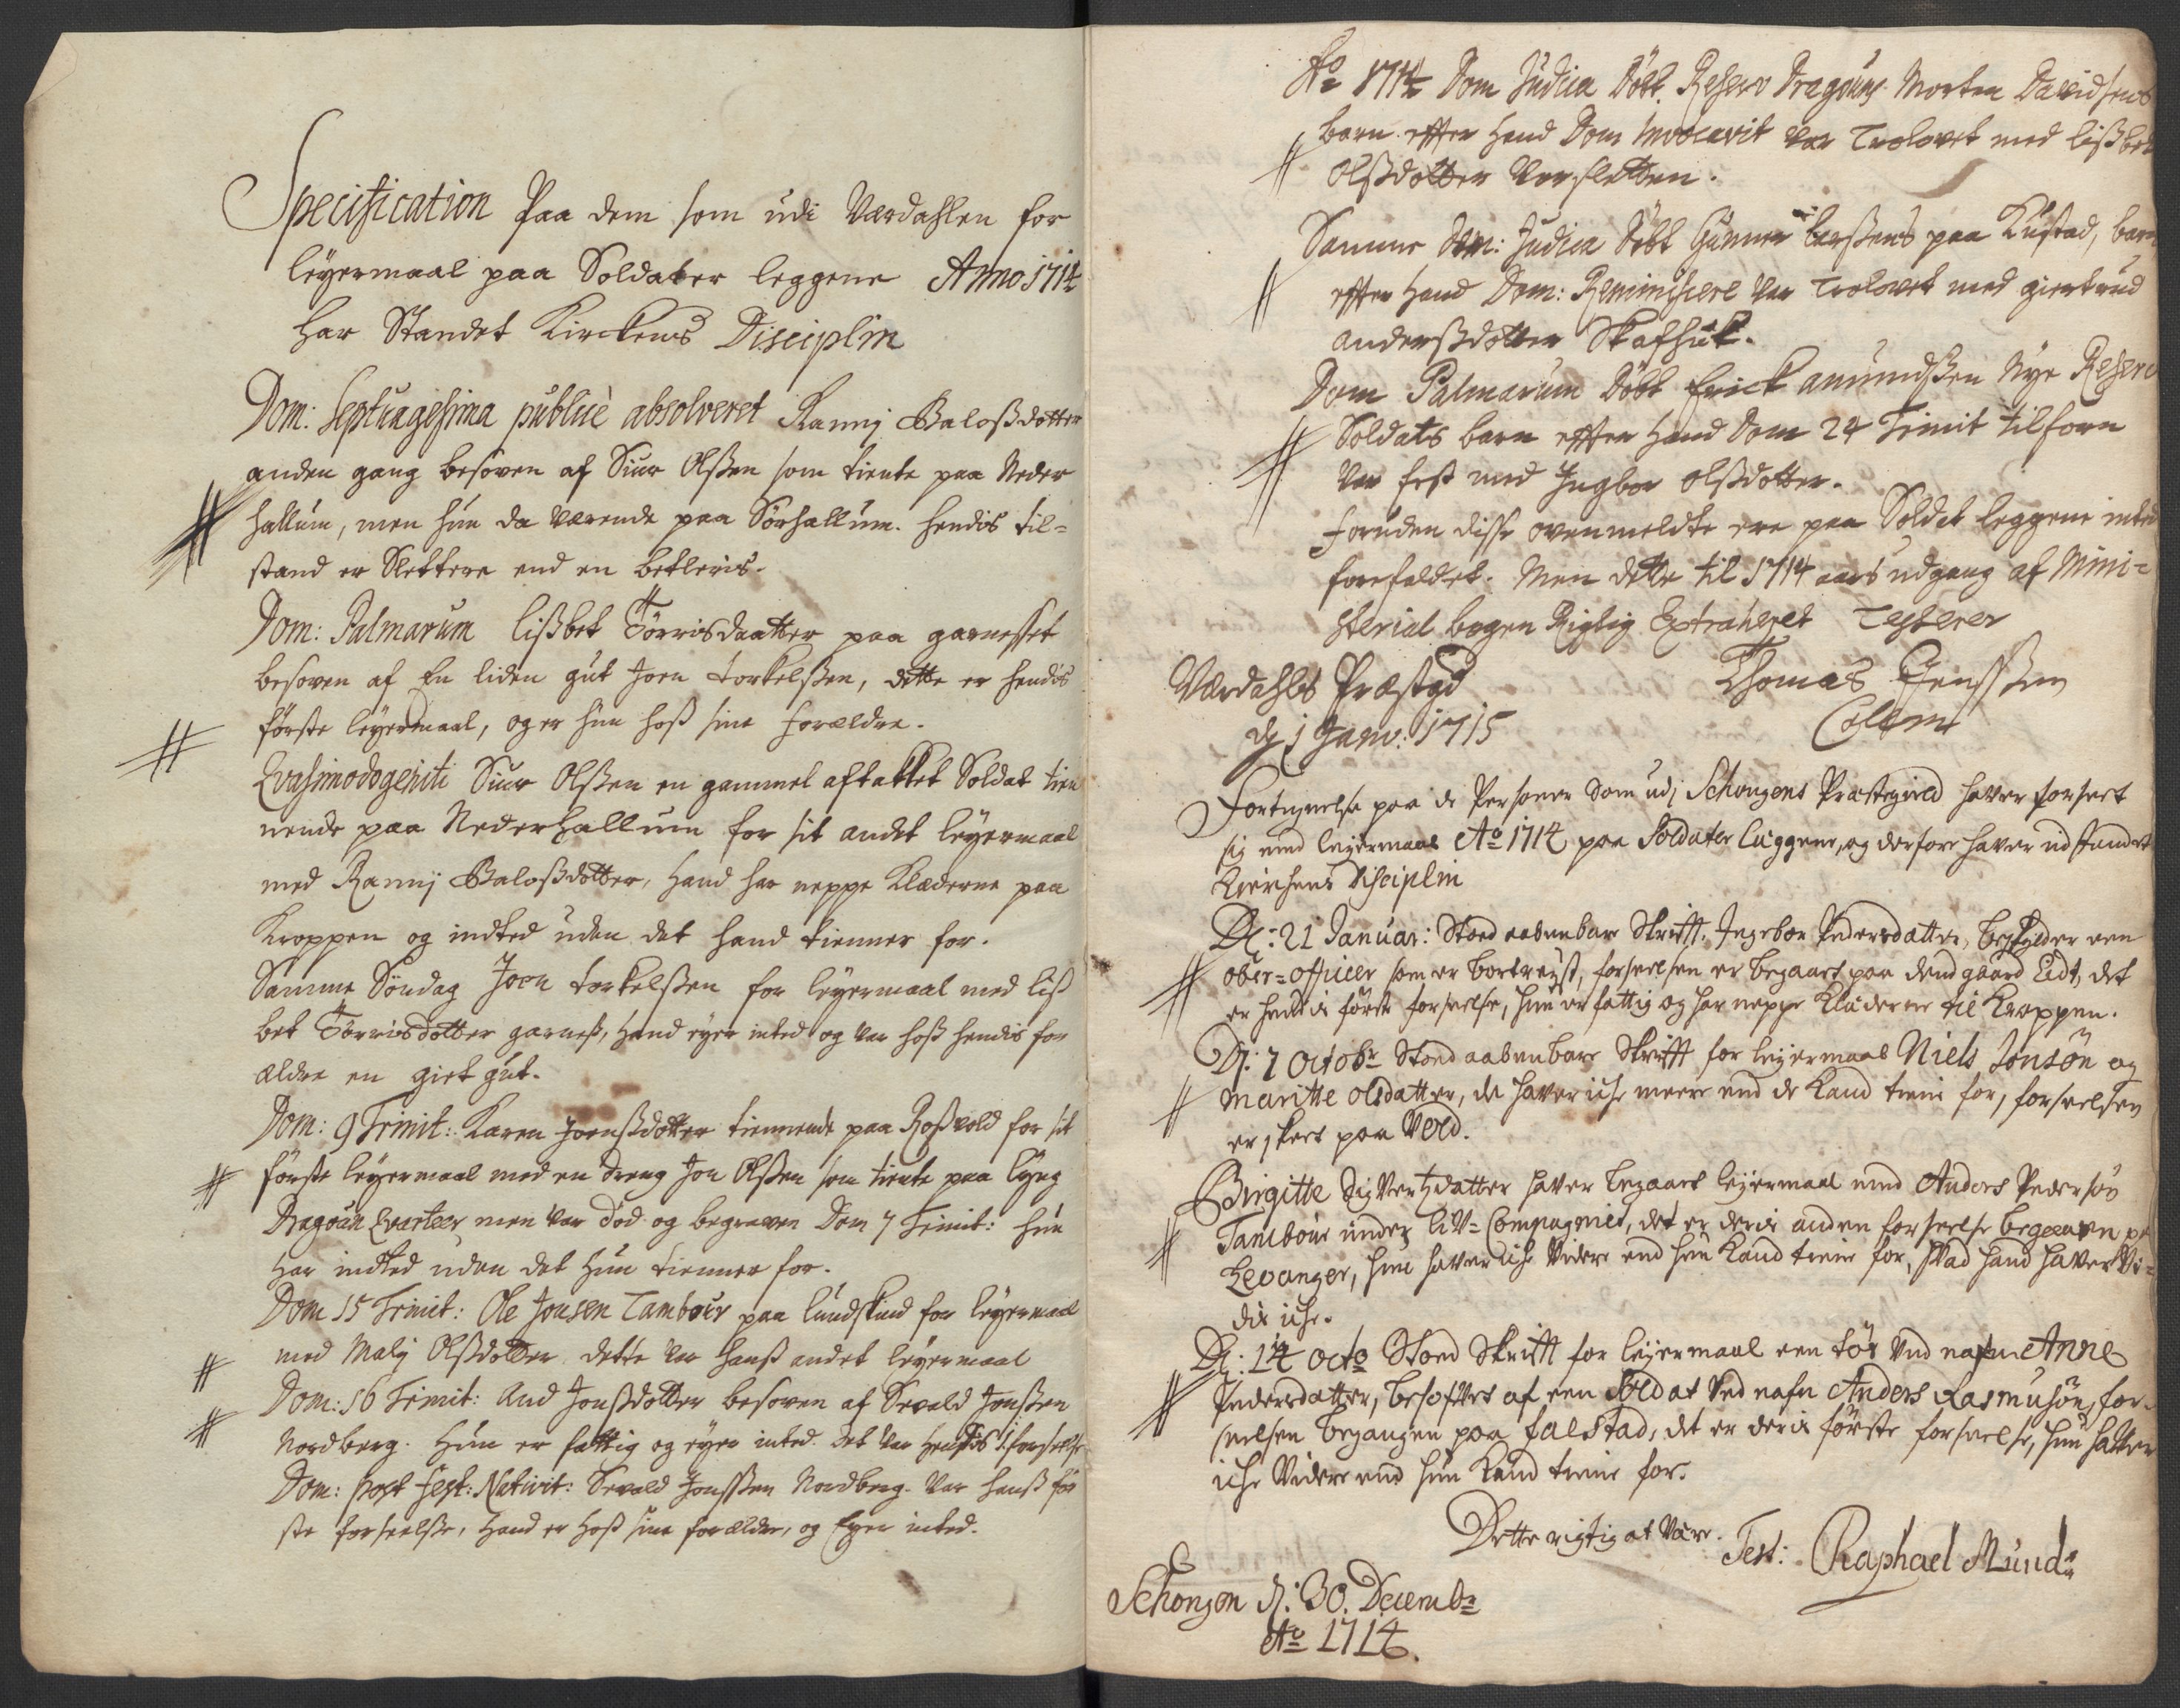 Specification Paa dem som udi Værdahlen for
leyermaal paa Soldater leggene Anno 1714
har Standet Kirckens Disciplin
Dom: Septuagesima publicè absolveret Ranni Baloßdotter
anden gang besoven af Siur Olßen som tiente paa Neder
hallum, men hun da værende paa Sørhallum. hendis til-
stand er Slettere end en betleris.
Dom: Palmarum Lißbet Tørrisdaatter paa garnesset
besoven af En liden gut Joen Torkelßen, dette er hendis
første leyermaal, og er hun hoß sine forældre.
Qvasimodogeniti Siur Olßen en gammel aftakket Soldat tien
nende paa Nederhallum for sit andet leyermaal
med Ranni Baloßdotter, hand har neppe Klæderne paa
Kroppen og indted uden det hand tienner for.
Samme Søndag Joen Torkelßen for leyermaal med Liß
bet Tørrisdotter garneß, hand eyer inted og var hoß hendis for
ældre en giet gut.
Dom: 9 Trinit: Karen Joenßdotter tiennende paa Roßvold for sit
første leyermaal med en dreng Jon Olßen som tiente paa Lyng
Dragoun Qvarteer, men var død og begraven Dom 7 Trinit: hun
har indted uden det hun tienner for.
Dom 15 Trinit: Ole Jonsen Tambour paa Lundskind for leyermaal
med Mali Olßdotter. dette var hanß andet leyermaal
Dom: 16 Trinit: Aud Jonßdotter besoven af Sevald Jonßen
Nordberg. Hun er fattig og eyer inted. det var hendis 1. forseelse
Dom: post fest: Nativit: Sevald Jonßen Nordberg. var hanß før
ste forseelße, hand er hoß sine forældre, og Eyer inted.
Ao 1714 Dom Judica Døbt Reserv Dragouns Morten Davidsens
barn efter hand Dom Invocavit var Trolovet med Lißbet
Olßdotter Versletten.
Samme Dom: Judica Døbt Gunner Larßens paa Kustad, barn
efter hand Dom: Reminiscere var Trolovet med giertrud
andersdotter Skafhuk.
Dom Palmarum Døbt Erick Amundßen Nye Reserv
Soldats barn efter hand Dom 24 Trinit tilforn
var fest med Ingbor Olßdotter.
foruden disse ovenmeldte ere paa Soldat leggene inted
forefaldet. Men dette til 1714 aars udgang af Mini-
sterial bogen Rigtig Extraheret Testerer
Værdahls Præstgd Thomas Jenßen
d 1 Janv: 1715 Collin
Fortegnelse paa de Personer Som udj Schongens Præstegield haver forseet
sig med leyermaal Ao 1714 paa Soldater læggene, og derfore haver udstandet
Kirchens Disciplin
D: 21 Januar: Stoed aabenbare Skrifft. Ingebor Pedersdatter, beskylder een
ober-officer som er bortreyst, forseelsen er begaaet paa dend gaard Eidt, det
er hendis første forseelse, hun er fattig og har neppe Klæderne til Kroppen.
D: 7 Octobr Stoed aabenbare Skrifft for leyermaal Niels Jonsøn og
Maritte Olsdatter, de haver iche meere end de kand tiene for, forseelsen
er skeet paa Vold.
Birgitte Sivertzdatter haver begaaet leyermaal med Anders Pedersøn
Tambour under Liv-Compagniet, det er deris anden forseelse begaaen paa
Levanger, hun haver iche videre end hun kand tiene for, hvad hand haver Vi-
dis iche.
D: 14 Octo Stoed Skrifft for leyermaal een tøs ved nafn Anne
Pedersdatter, besofvet af een Soldat ved nafn Anders Rasmusøn, for-
seelsen begangen paa Falstad, det er deris første forseelse, hun hafver
iche videre end hun kand tiene for.
Dette rigtig at være. Test: Raphael Mund
Schongen d: 30. Decembr
Ao 1714.